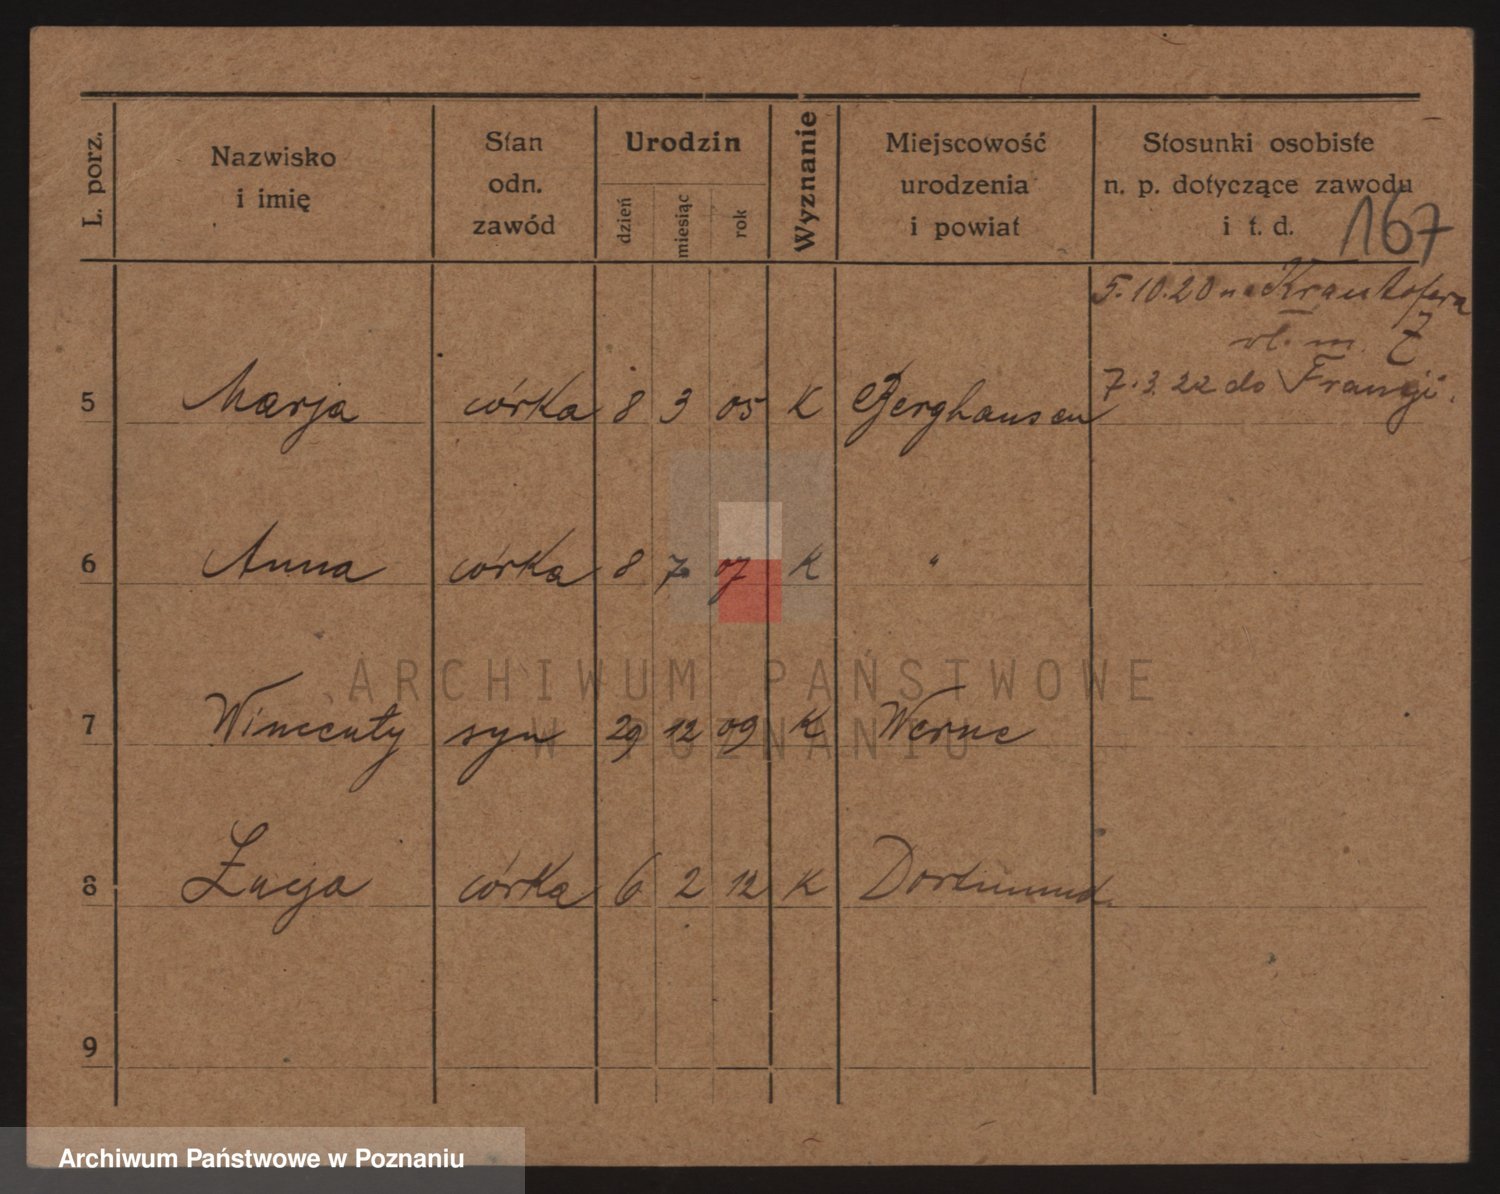 L. porz.
Nazwisko i imię
Stan odn. zawód
Urodzin
dzień miesiąc rok
Wyznanie
Miejscowość urodzenia i powiat
Stosunki osobiste n. p. dotyczące zawodu i t. d.
167
5.10.20 na Krauthofera
7.3.22 do Francji.
5 Marja córka 8 3 05 K Berghausen
6 Anna córka 8 7 07 K "
7 Wincenty syn 29 12 09 K Werne
8 Łucja córka 6 2 12 K Dortmund.
9
ARCHIWUM PAŃSTWOWE
W POZNANIU
Archiwum Państwowe w Poznaniu